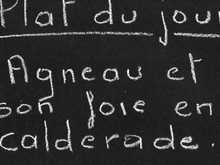 Plat du jour
Agneau et
son foie en
calderade.